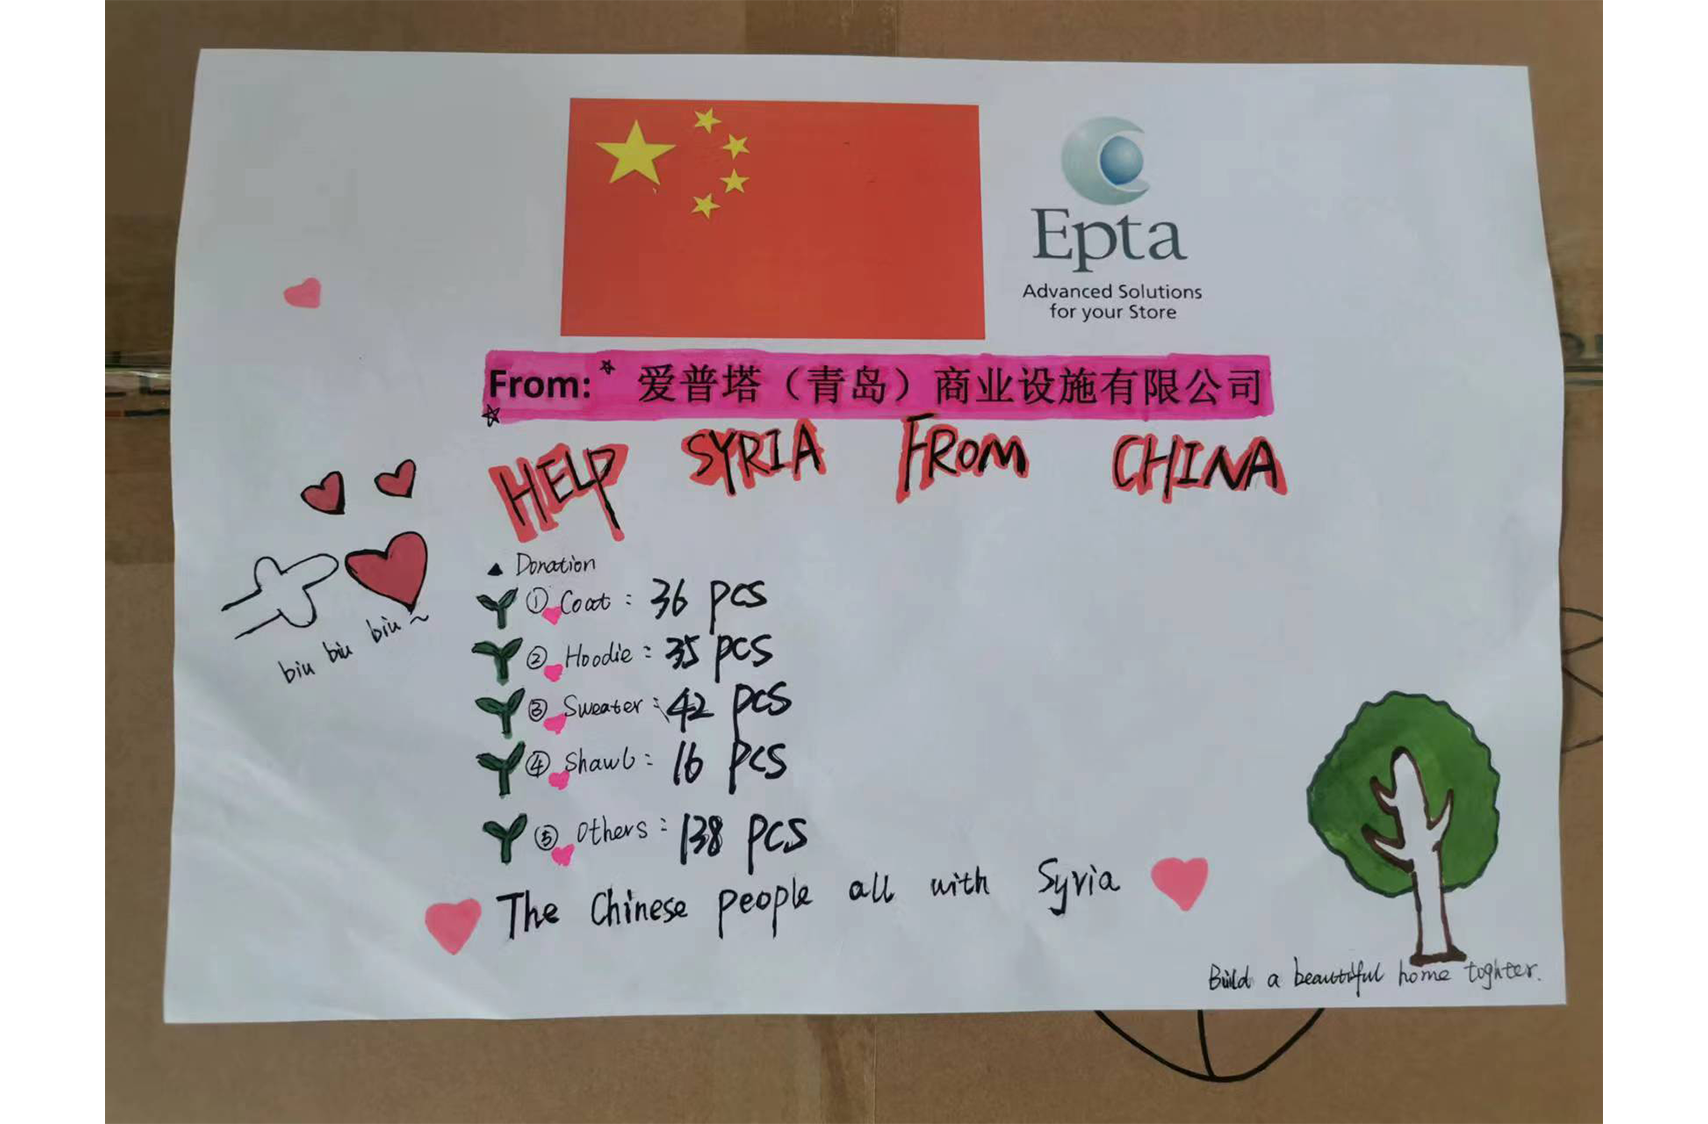 Epta
Advanced Solutions
for your Store
From: 爱普塔（青岛）商业设施有限公司
HELP SYRIA FROM CHINA
▲ Donation
① Coat : 36 pcs
② Hoodie : 35 pcs
③ Sweater : 42 pcs
④ Shawl : 16 pcs
⑤ Others : 138 pcs
biu biu biu ~
The Chinese people all with Syria
Build a beautiful home toghter.